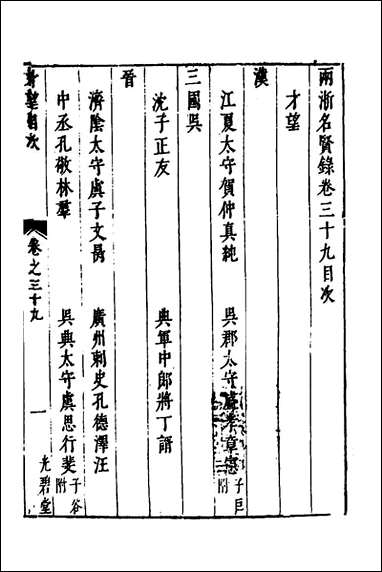 兩浙名賢錄卷三十九目次
才望
漢
江夏太守賀仲真純 吳郡太守盛孝章憲 子巨附
三國吳
沈子正友 典軍中郎將丁諝
晉
濟陰太守虞子文昺 廣州刺史孔德澤汪
中丞孔敬林羣 吳興太守虞思行斐 子谷附
才望目次 卷之三十九 一 光碧堂